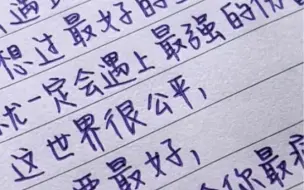 遇
想过最好的
就一定会遇上最强的
这世界很公平，
要最好，
给你最